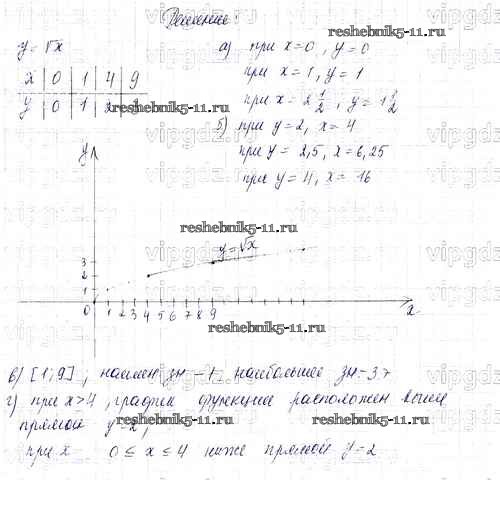 Решение:
y = √x
x 0 1 4 9
y 0 1 2 3
а) при x=0, y=0
при x=1, y=1
при x=2 1/2, y=1 1/2
б) при y=2, x=4
при y= 2,5, x=6,25
при y=4, x= 16
y
y=√x
3
2
1
0 1 2 3 4 5 6 7 8 9
x
в) [1; 9]; наимен зн -1, наибольшее зн-3.
г) при x>4, график функции расположен выше
прямой y=2,
при x 0 ≤ x ≤ 4 ниже прямой y=2
reshebnik5-11.ru
reshebnik5-11.ru
reshebnik5-11.ru
reshebnik5-11.ru
reshebnik5-11.ru
reshebnik5-11.ru
vipgdz